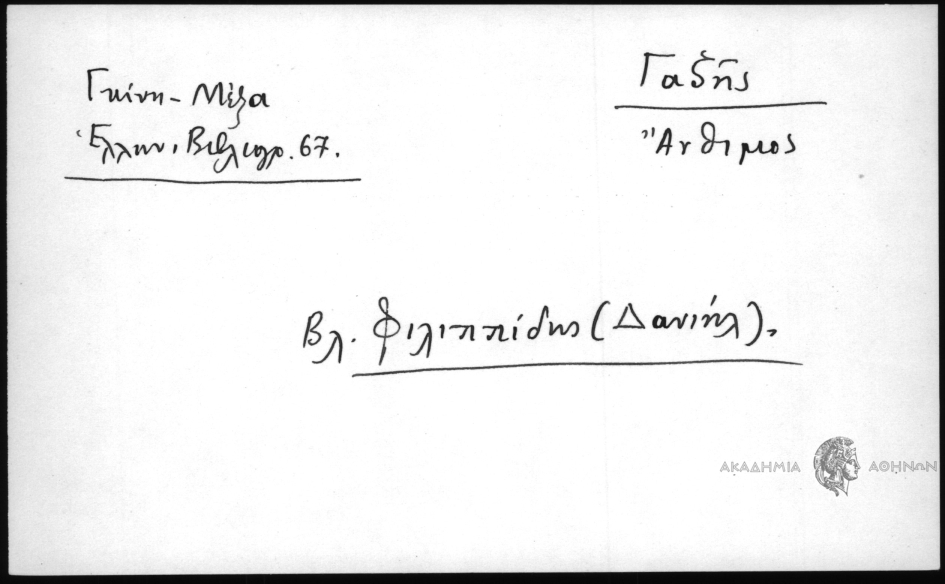 Γκίνη - Μέξα
Ἑλλην. Βιβλιογρ. 67.
Γαζῆς
Ἄνθιμος
Βλ. Φιλιππίδης (Δανιήλ).
ΑΚΑΔΗΜΙΑ ΑΘΗΝΩΝ